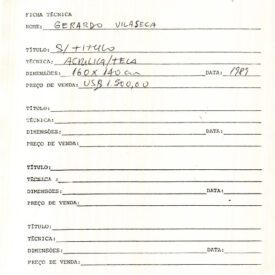 FICHA TÉCNICA
NOME: GERARDO VILASECA
TÍTULO: S/ TITULO
TÉCNICA: ACRILICA/TELA
DIMENSÕES: 160 X 140 cm DATA: 1989
PREÇO DE VENDA: US$ 1.500,00
TÍTULO:
TÉCNICA:
DIMENSÕES: DATA:
PREÇO DE VENDA:
TÍTULO:
TÉCNICA:
DIMENSÕES: DATA:
PREÇO DE VENDA:
TÍTULO:
TÉCNICA:
DIMENSÕES: DATA:
PREÇO DE VENDA: